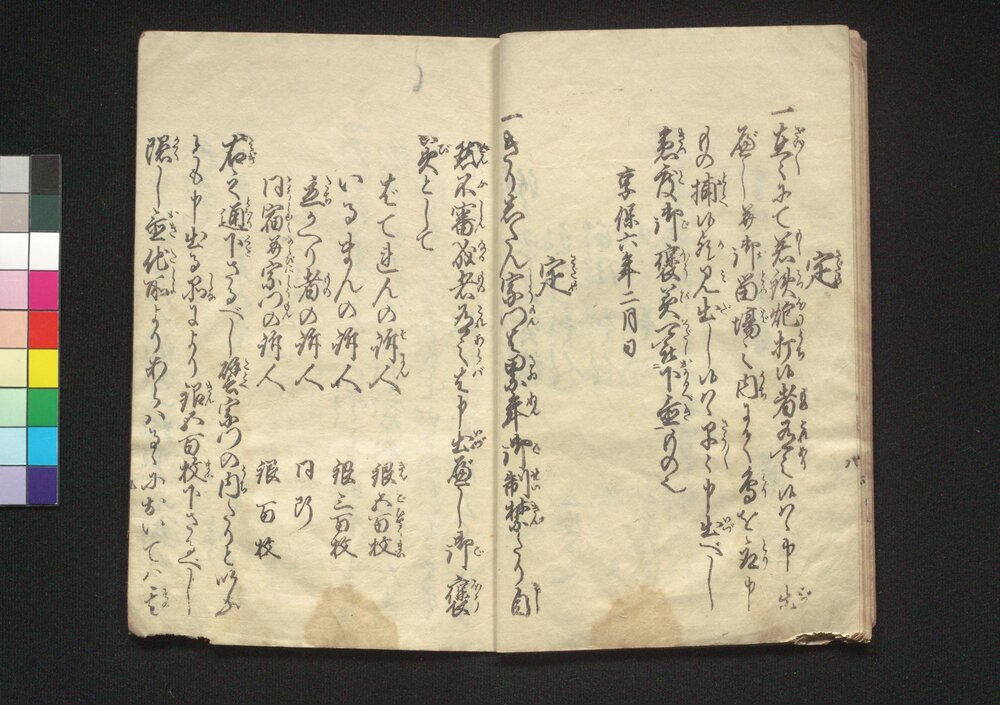 定
一在々にて若鉄炮打候者有之候ハヽ申出
へし并御留場之内にて鳥を取申
もの捕候歟見出し候ハヽ早々申出へし
急度御褒美可被下置もの也
享保六年二月日
定
一きりしたん宗門は累年御制禁たり自
然不審成者有之は申出へし御褒
美として
はてれんの訴人 銀五百枚
いるまんの訴人 銀三百枚
立かへり者の訴人 同断
同宿并宗門の訴人 銀百枚
右之通下さるへし譬宗門の内たりといふ
とも申出る品により銀五百枚下さるへし
隠し置他所よりあらハるゝにおいてハ其